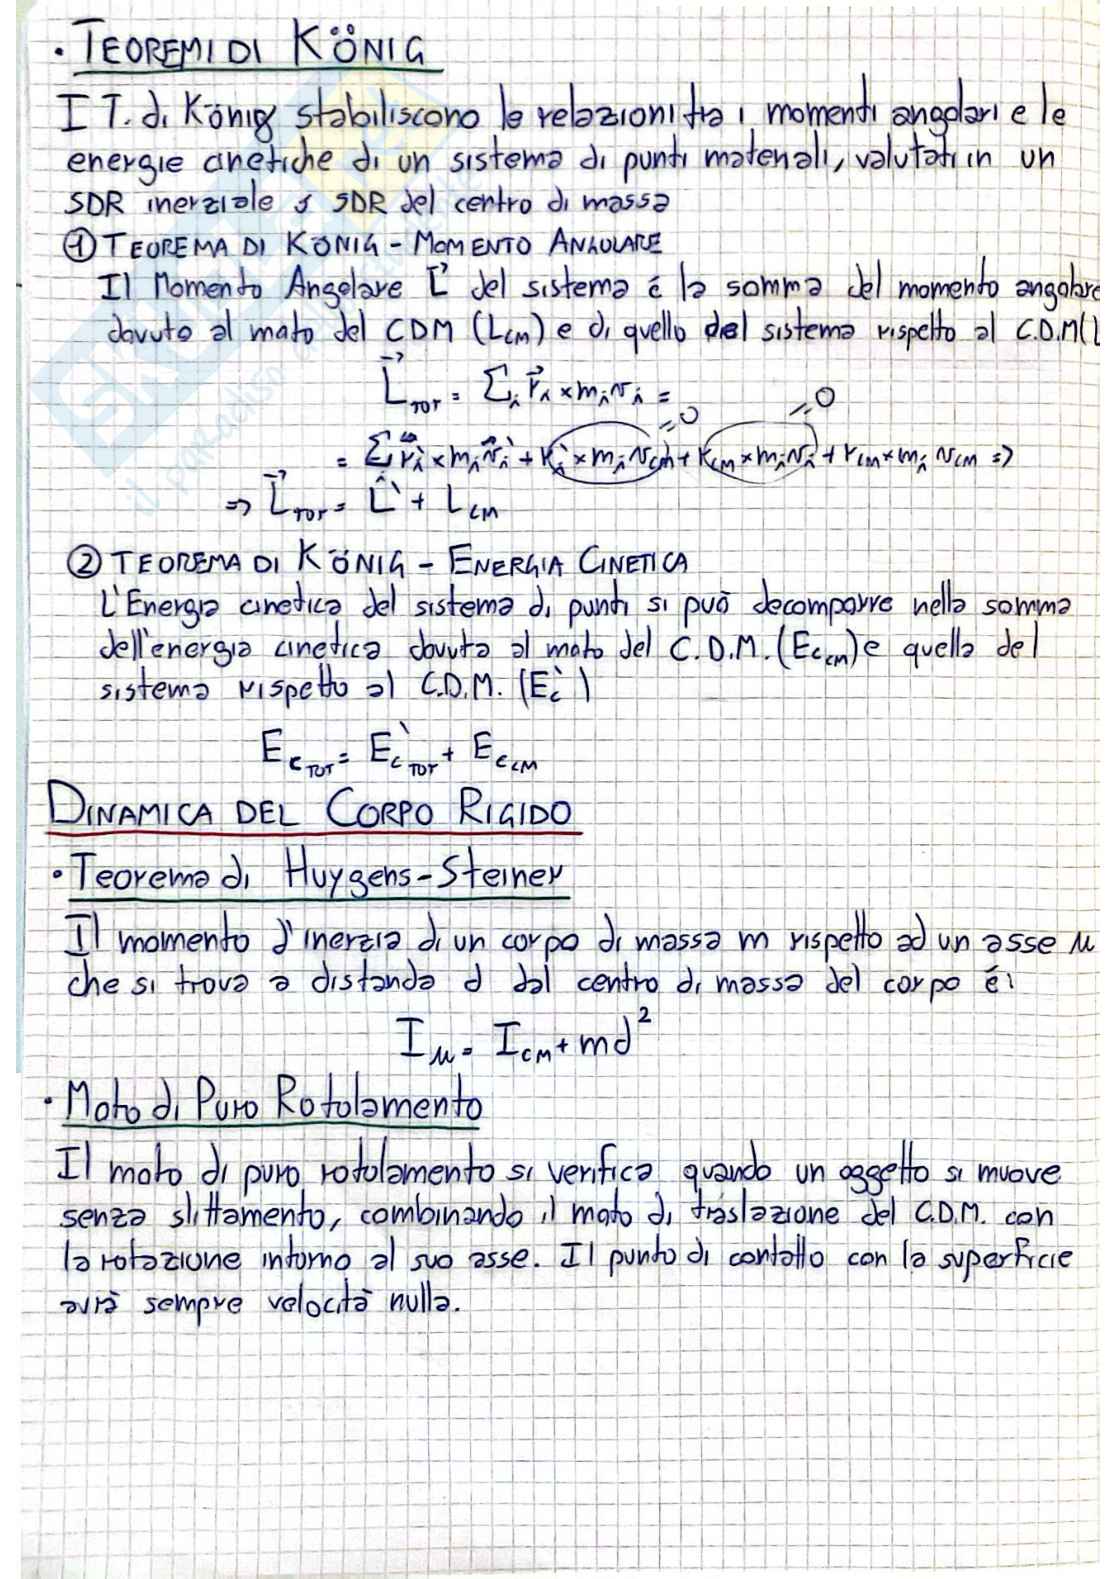 • TEOREMI DI KÖNIG
I T. di König stabiliscono le relazioni tra i momenti angolari e le
energie cinetiche di un sistema di punti materiali, valutati in un
SDR inerziale e SDR del centro di massa
① TEOREMA DI KÖNIG - MOMENTO ANGOLARE
Il Momento Angolare L⃗ del sistema é la somma del momento angolare
dovuto al moto del CDM (L_CM) e di quello del sistema rispetto al C.D.M (L
L⃗_TOT = Σ_i r⃗_i × m_i v_i =
= Σ r⃗_i' × m_i v⃗_i' + r_i' × m_i v_CM + r_CM × m_i v_i' + r_CM × m_i v_CM =>
=0 =0
=> L⃗_TOT = L' + L_CM
② TEOREMA DI KÖNIG - ENERGIA CINETICA
L'Energia cinetica del sistema di punti si può decomporre nella somma
dell'energia cinetica dovuta al moto del C.D.M. (Ec_CM) e quella del
sistema rispetto al C.D.M. (Ec')
Ec_TOT = Ec'_TOT + Ec_CM
DINAMICA DEL CORPO RIGIDO
• Teorema di Huygens-Steiner
Il momento d'inerzia di un corpo di massa m rispetto ad un asse u
che si trova a distanda d dal centro di massa del corpo é:
I_u = I_CM + md²
• Moto di Puro Rotolamento
Il moto di puro rotolamento si verifica quando un oggetto si muove
senza slittamento, combinando il moto di traslazione del C.D.M. con
la rotazione intorno al suo asse. Il punto di contatto con la superficie
avrà sempre velocità nulla.